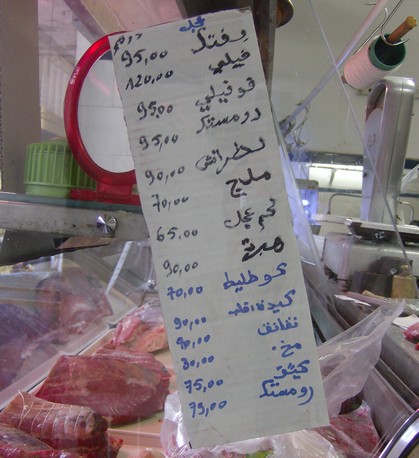 عجل
درهم
بفتك 95,00
فيلي 120,00
فوفيلي 95,00
رومستك 95,00
لطرانش 90,00
مليح 70,00
لحم عجل 65,00
هبرة 90,00
كوطليط 70,00
كبدة + قلب 90,00
نقانق 80,00
مخ. 80,00
75,00
رومستك 79,00